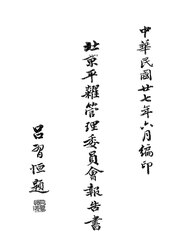 中華民國廿七年六月編印
北京平糶管理委員會報告書
呂習恒題